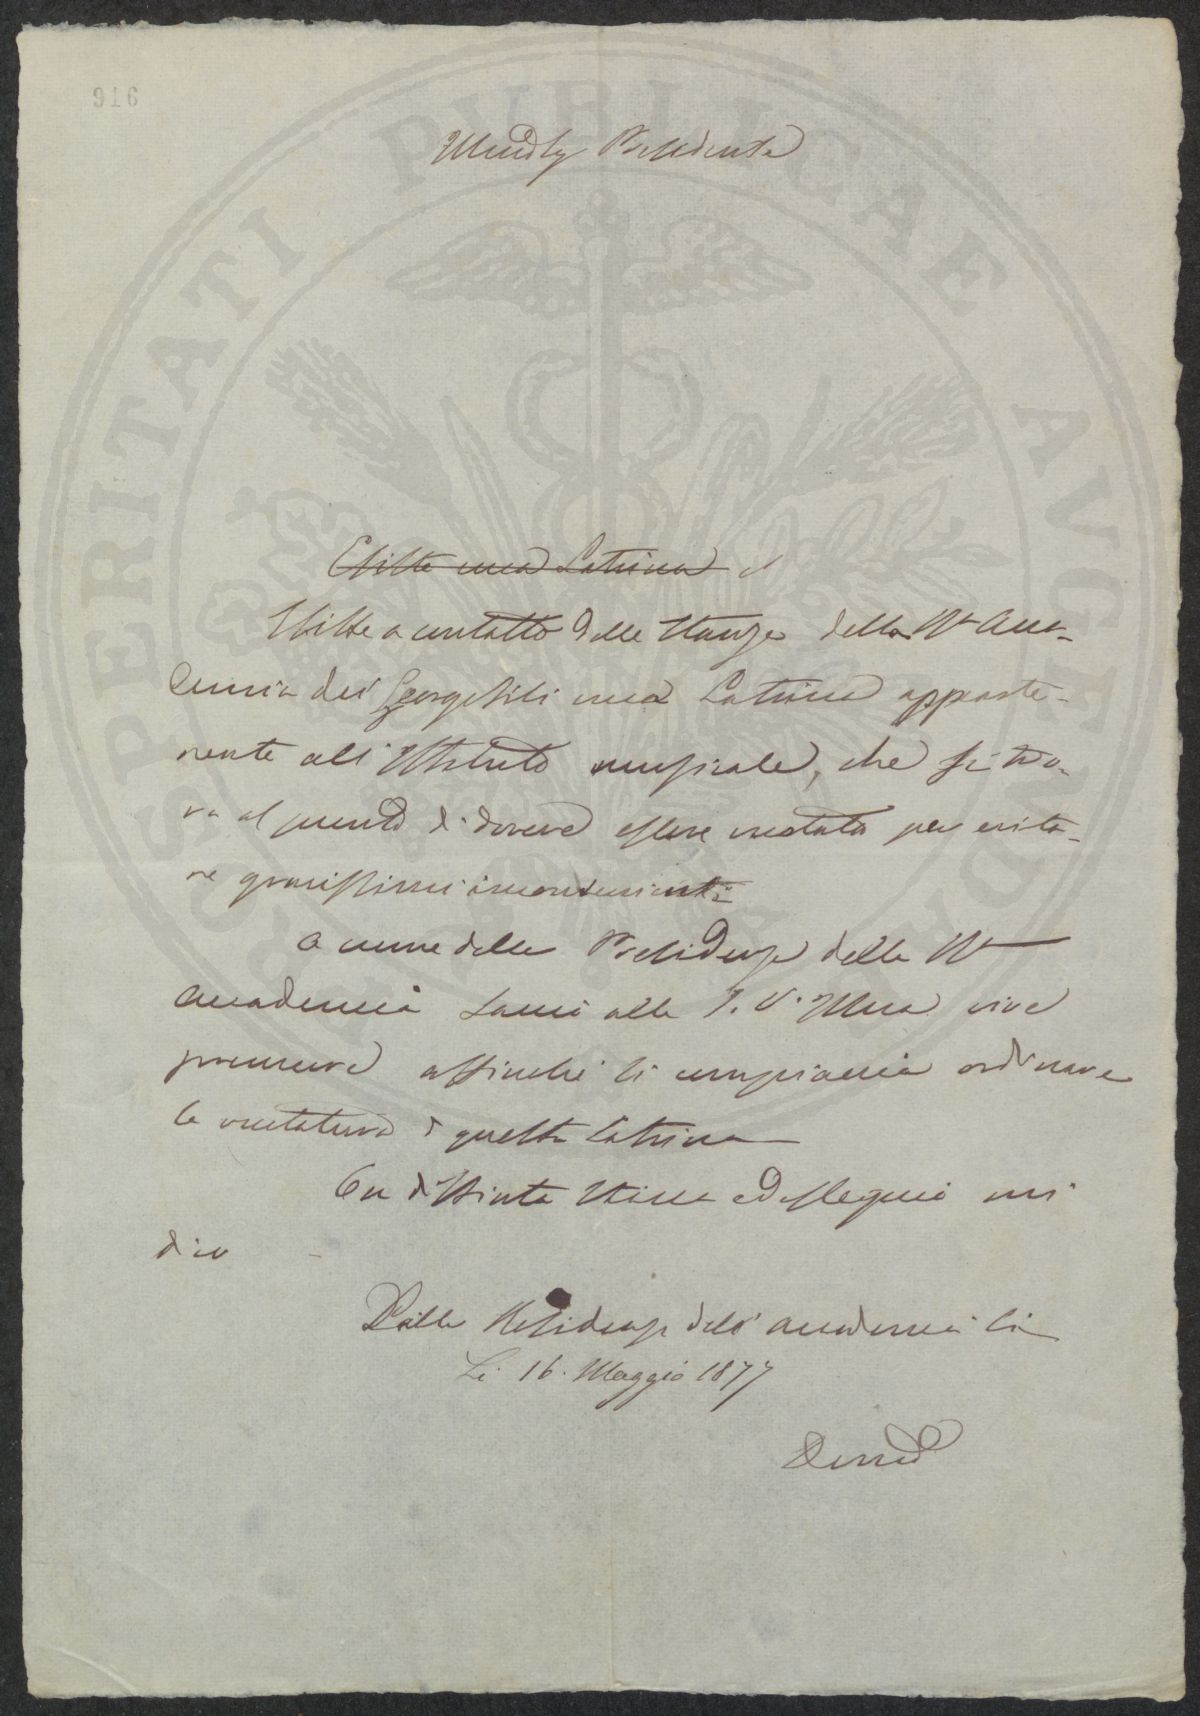 916
PROSPERITATI PUBLICAE AUGENDAE
Presidente
Esiste una Latrina
Esiste a contatto delle Stanze della R.a Acca-
demia dei Georgofili una Latrina apparte-
nente all'Istituto musicale, che si tro-
va al punto di dovere essere vuotata per evita-
re gravissimi inconvenienti
a nome della Presidenza della R.a
Accademia faccio alla S. V. Illma vive
premure affinché si compiaccia ordinare
la vuotatura di questa latrina
Con distinta stima ed ossequio mi
dico
Dalla Residenza dell'Accademia
Li 16. Maggio 1877